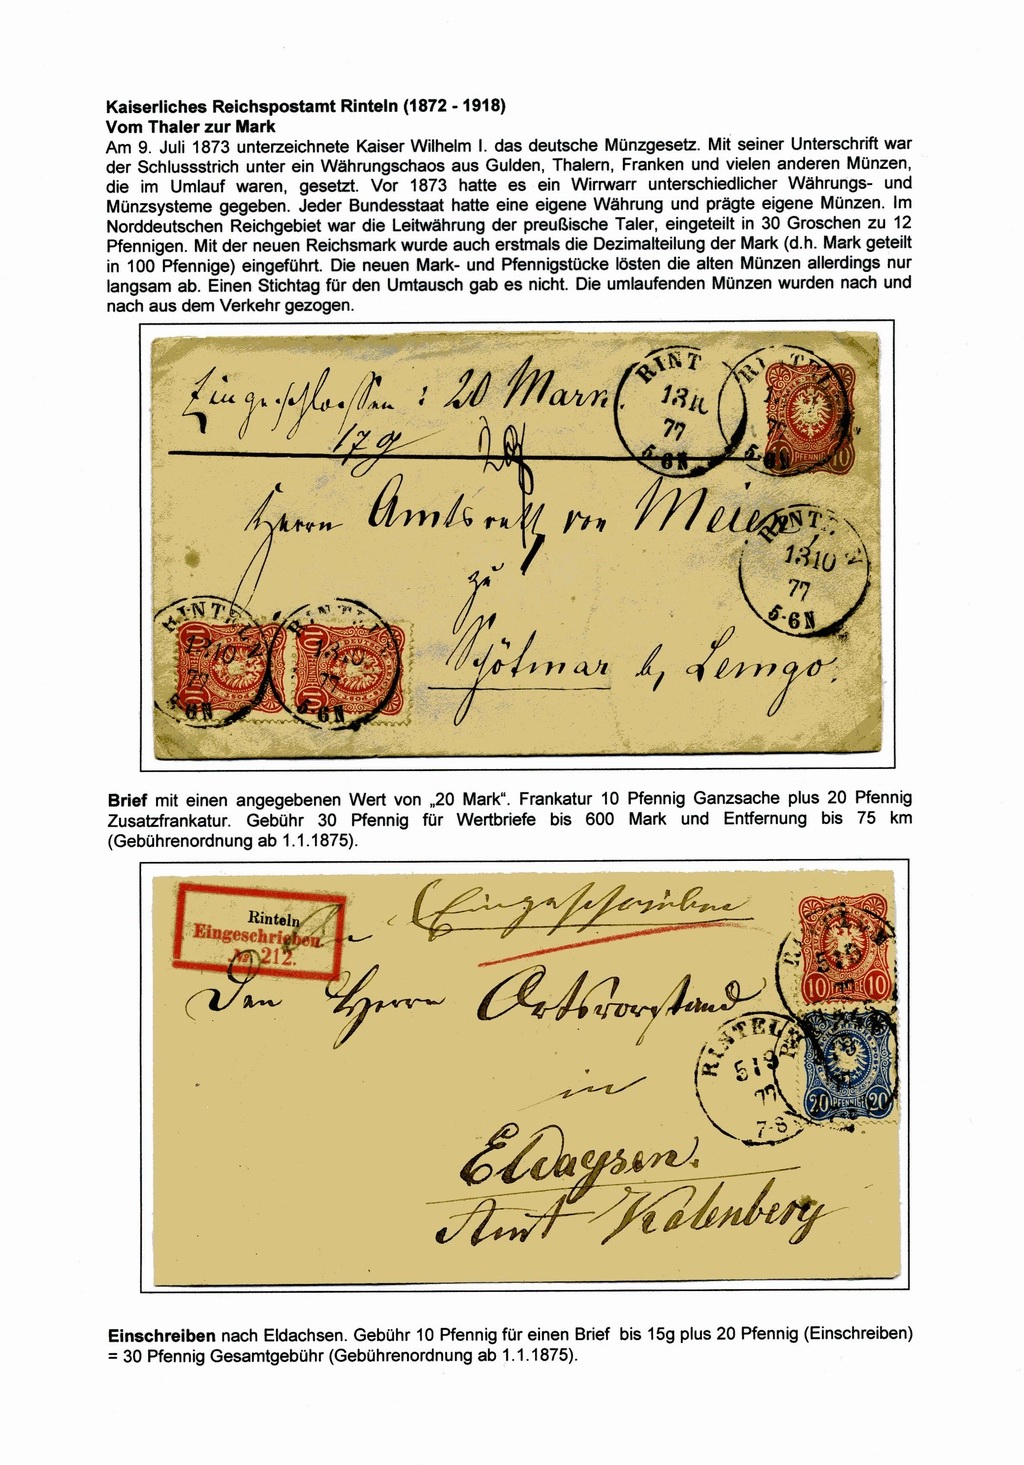 Kaiserliches Reichspostamt Rinteln (1872 - 1918)
Vom Thaler zur Mark
Am 9. Juli 1873 unterzeichnete Kaiser Wilhelm I. das deutsche Münzgesetz. Mit seiner Unterschrift war
der Schlussstrich unter ein Währungschaos aus Gulden, Thalern, Franken und vielen anderen Münzen,
die im Umlauf waren, gesetzt. Vor 1873 hatte es ein Wirrwarr unterschiedlicher Währungs- und
Münzsysteme gegeben. Jeder Bundesstaat hatte eine eigene Währung und prägte eigene Münzen. Im
Norddeutschen Reichgebiet war die Leitwährung der preußische Taler, eingeteilt in 30 Groschen zu 12
Pfennigen. Mit der neuen Reichsmark wurde auch erstmals die Dezimalteilung der Mark (d.h. Mark geteilt
in 100 Pfennige) eingeführt. Die neuen Mark- und Pfennigstücke lösten die alten Münzen allerdings nur
langsam ab. Einen Stichtag für den Umtausch gab es nicht. Die umlaufenden Münzen wurden nach und
nach aus dem Verkehr gezogen.
Eingeschlossen : 20 Mark.
17 g
RINT
77
5-6N
PFENNIG 10
Herrn Amtsrath von Meien
RINTELN
13 10
77
5-6N
zu
RINTELN
13 10
77
5-6N
10
Schötmar b, Lemgo.
Brief mit einen angegebenen Wert von „20 Mark“. Frankatur 10 Pfennig Ganzsache plus 20 Pfennig
Zusatzfrankatur. Gebühr 30 Pfennig für Wertbriefe bis 600 Mark und Entfernung bis 75 km
(Gebührenordnung ab 1.1.1875).
Rinteln
Eingeschrieben.
No 212.
Eingeschrieben
10 PFENNIGE 10
An
Den Herrn Ortsvorstand
RINTELN
5 9
77
7-8
20 PFENNIGE 20
in
Eldagsen.
Amt Kalenberg
Einschreiben nach Eldachsen. Gebühr 10 Pfennig für einen Brief bis 15g plus 20 Pfennig (Einschreiben)
= 30 Pfennig Gesamtgebühr (Gebührenordnung ab 1.1.1875).